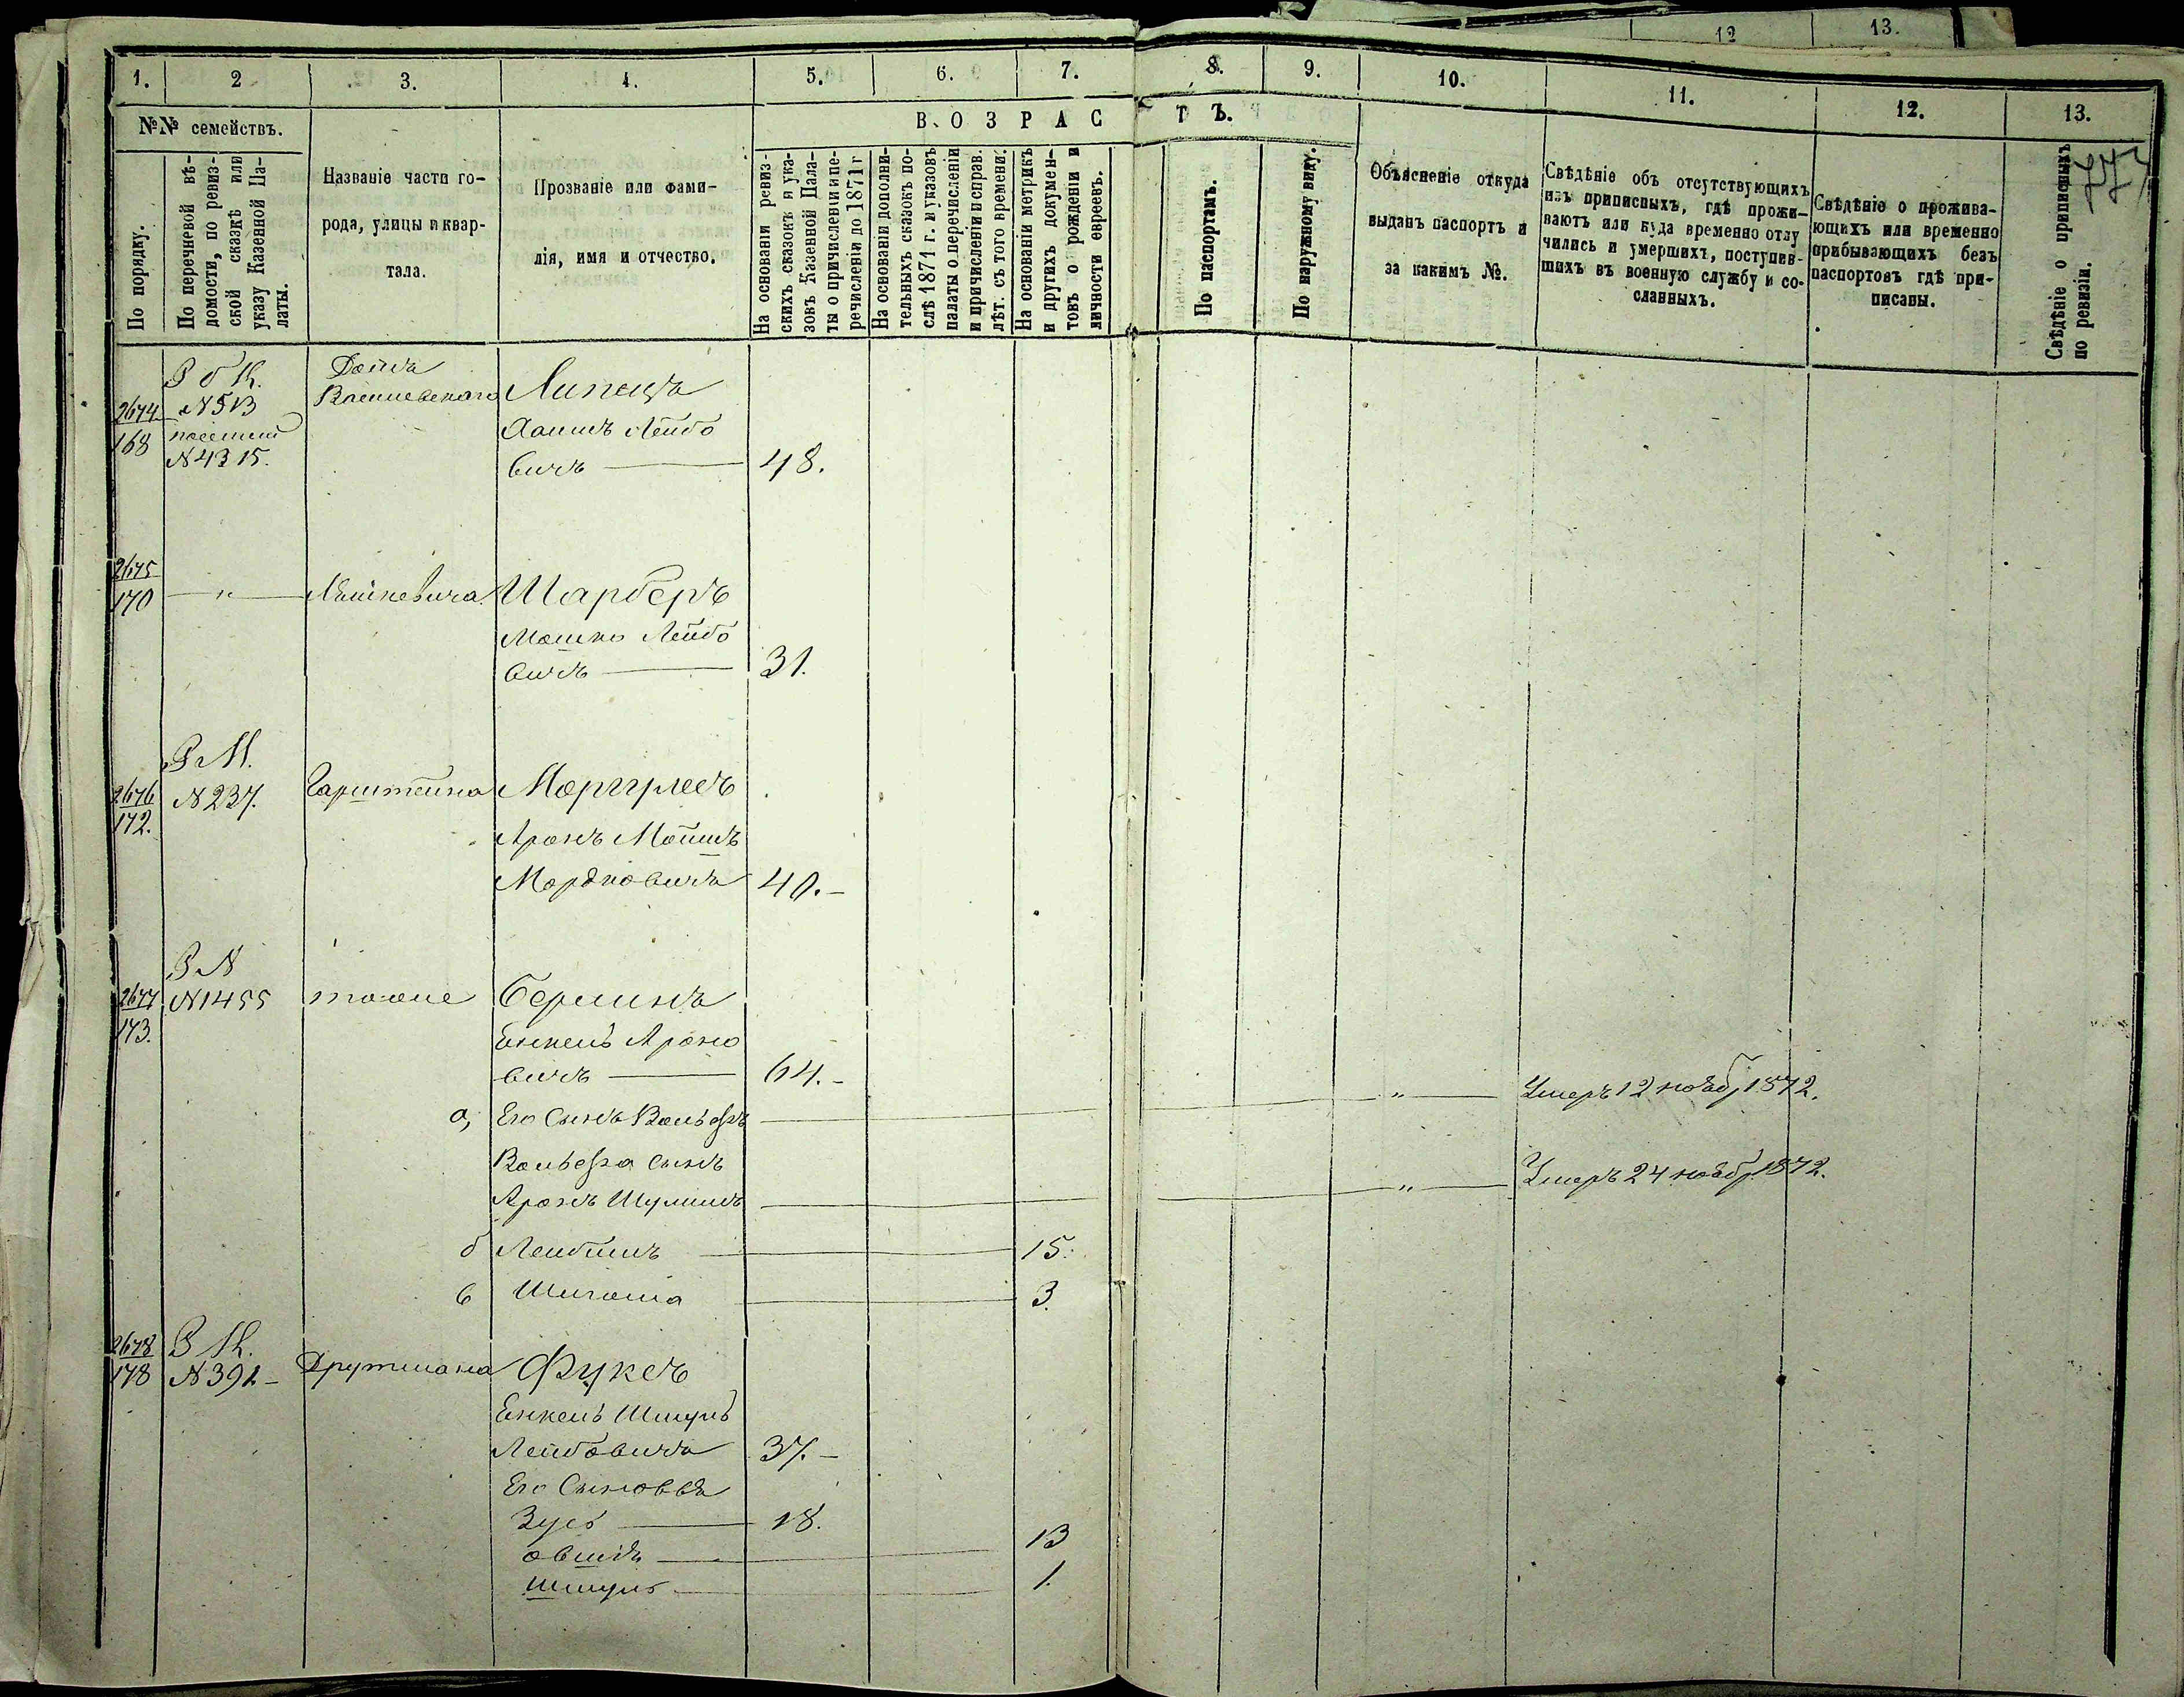 12
13.
1.
2
3.
4.
5.
6.
7.
8.
9.
10.
11.
12.
13.
№№ семействъ.
В О З Р А С Т Ъ.
По порядку.
По перечневой вѣ-
домости, по ревиз-
ской сказкѣ или
указу Казенной Па-
латы.
Названіе части го-
рода, улицы и квар-
тала.
Прозваніе или фами-
лія, имя и отчество.
На основаніи ревиз-
скихъ сказокъ и ука-
зовъ Казенной Пала-
ты о причисленіи и пе-
речисленіи до 1871 г
На основаніи дополни-
тельныхъ сказокъ по-
слѣ 1871 г. и указовъ
палаты о перечисленіи
и причисленіи и справ.
лѣт. съ того времени.
На основаніи метрикъ
и другихъ докумен-
товъ о рожденіи и
личности евреевъ.
По паспортамъ.
По наружному виду.
Объясненіе откуда
выданъ паспортъ и
за какимъ №.
Свѣдѣніе объ отсутствующихъ
изъ приписныхъ, гдѣ прожи-
ваютъ или куда временно отлу
чились и умершихъ, поступив-
шихъ въ военную службу и со-
сланныхъ.
Свѣдѣніе о прожива-
ющихъ или временно
прибывающихъ безъ
паспортовъ гдѣ при-
писаны.
Свѣдѣніе о приписныхъ
по ревизіи.
2674
168
№513
№4315.
Дома
Липецъ
Хаимъ Лейбо
вичъ — 48.
2675
170
— " —
Шарберъ
Мошко Лейбо
вичъ — 31.
2676
172.
№237.
Гарштейна
Моргулесъ
Аронъ Мойшъ
Мордковичъ 40.-
2677
173.
№1455
тоже
Берлинъ
Енкель Ароно
вичъ — 64.-
а, Его Сынъ Вольфъ — " — Умеръ 12 ноябр 1872.
Вольфа сынъ
Аронъ Шулимъ — " — Умеръ 24 ноябр. 1872.
б Лейбишъ — 15.
в — 3.
2678
178
№391-
Друтмана
Фуксъ
Енкель Шмуль
Лейбовичъ 37.-
Его Сыновья
Зусь — 18.
Овшія — 13
Шмуль — 1.